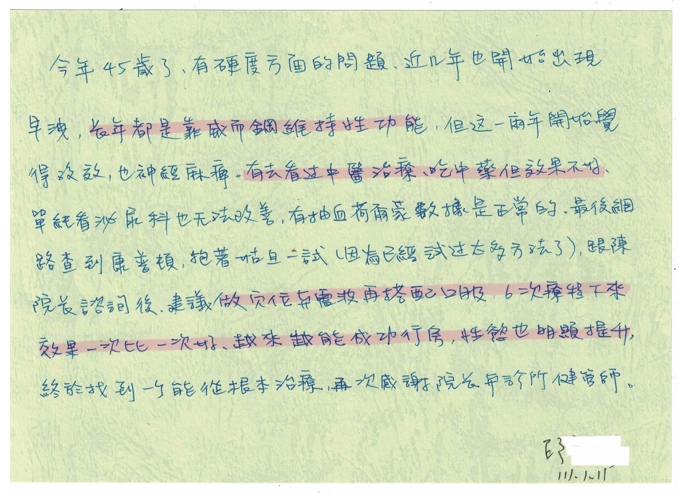 今年45歲了、有硬度方面的問題、近几年也開始出現
早洩,長年都是靠威而鋼維持性功能,但这一兩年開始覺
得沒效,也神經麻痺。有去看过中醫治療、吃中藥但效果不好、
單純看泌尿科也无法改善,有抽血荷爾蒙數據是正常的、最後網
路查到康誉頓,抱著姑且一試(因為已經試过太多方法了),跟陳
院长諮詢後、建議做穴位与震波再搭配口服,6次療程下來
效果一次比一次好、越來越能成功行房,性慾也明顯提升,
終於找到一个能從根本治療,再次感謝院长与診所健管師。
111.1.15